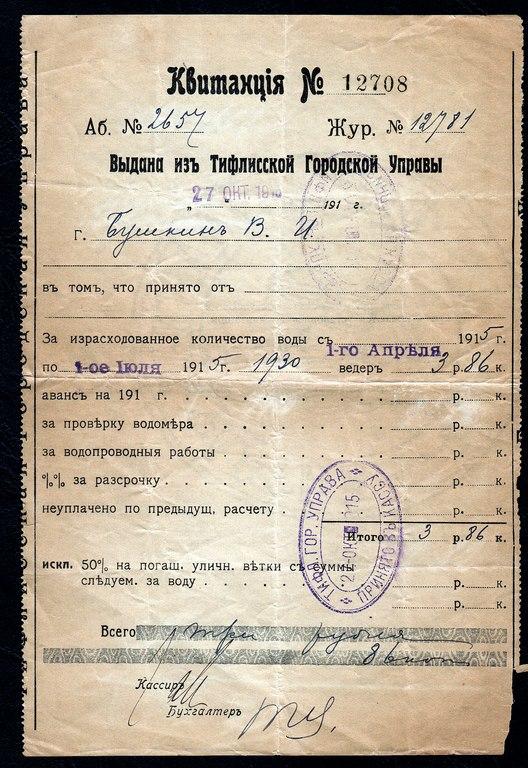 Квитанція № 12708
Аб. № 2657 Жур. № 12781
Выдана изъ Тифлисской Городской Управы
27 ОКТ. 1915
„ “ 191 г.
г. Бушкинъ В. И.
въ томъ, что принято отъ
За израсходованное количество воды съ 1-го Апрѣля 1915 г.
по 1-ое Іюля 1915 г. 1930 ведеръ 3 р. 86 к.
авансъ на 191 г. р. к.
за провѣрку водомѣра р. к.
за водопроводныя работы р. к.
%% за разсрочку р. к.
неуплачено по предыдущ. расчету р. к.
Итого 3 р. 86 к.
ТИФЛ. ГОР. УПРАВА
ПРИНЯТО ВЪ КАССУ
искл. 50% на погаш. уличн. вѣтки съ суммы
слѣдуем. за воду р. к.
р. к.
Всего три рубля
Кассиръ
Бухгалтеръ